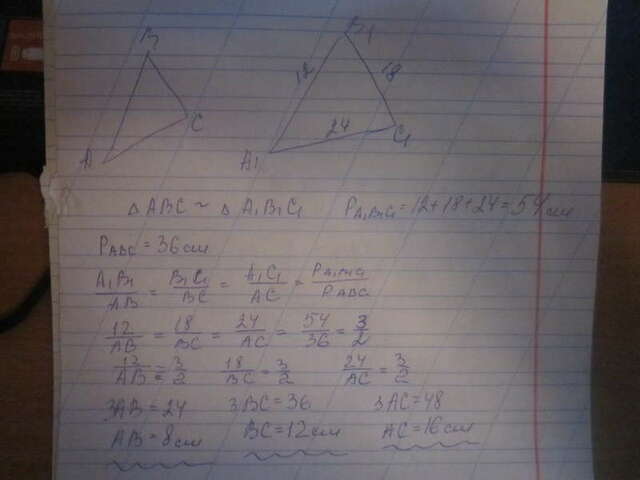 B B₁
12 18
A C 24 C₁
A₁
△ ABC ~ △ A₁B₁C₁ P_A₁B₁C₁ = 12+18+24=54см
P_ABC = 36см
A₁B₁/AB = B₁C₁/BC = A₁C₁/AC = P_A₁B₁C₁/P_ABC
12/AB = 18/BC = 24/AC = 54/36 = 3/2
12/AB = 3/2 18/BC = 3/2 24/AC = 3/2
3AB = 24 3BC = 36 3AC = 48
AB = 8см BC = 12см AC = 16см